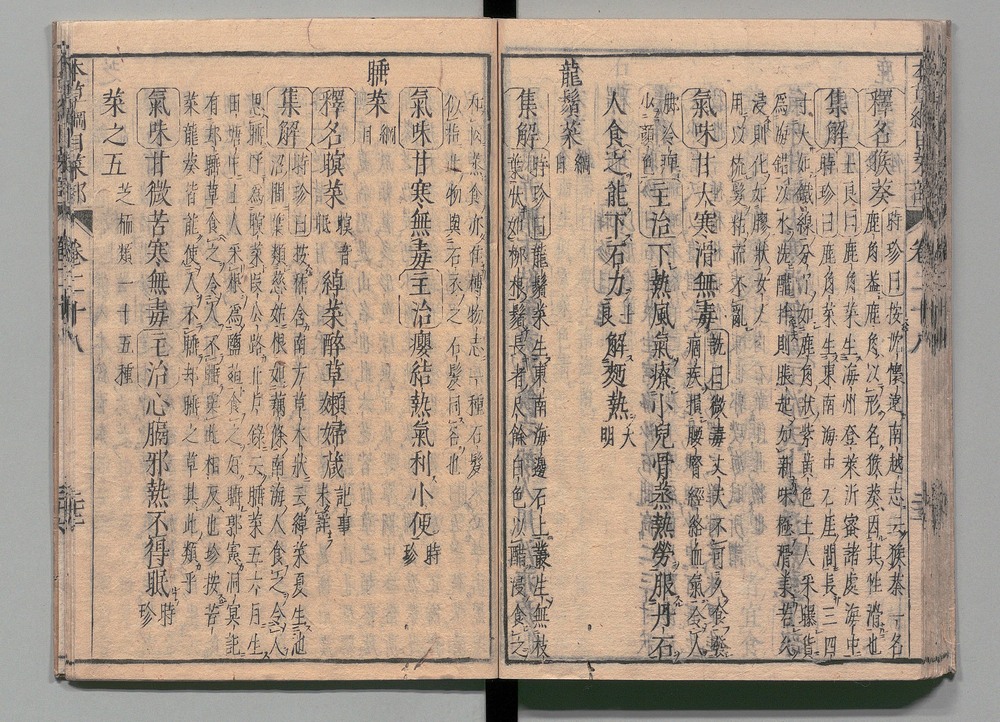 釋名猴葵時珍曰按沈懷遠南越志云猴葵一名
鹿角蓋鹿角以形名猴葵因其性滑也
集解士良曰鹿角菜生海州登萊沂密諸處海中
時珍曰鹿角菜生東南海中石崖間長三四
寸大如鐵線分丫如鹿角狀紫黃色土人采曝貨
為海錯以水洗醋拌則脹起如新味極滑美若久
浸則化如膠狀女人
用以梳髮粘而不亂
氣味甘大寒滑無毒詵曰微毒丈夫不可久食發
痼疾損腰腎經絡血氣令人
脚冷痹
少顏色主治下熱風氣療小兒骨蒸熱勞服丹石
人食之能下石力士良解麵熱大明
龍鬚菜綱目
集解時珍曰龍鬚菜生東南海邊石上叢生無枝
葉狀如柳根鬚長者尺餘白色以醋浸食之
和肉蒸食亦佳博物志一種石髮
似指此物與石衣之石髮同名也
氣味甘寒無毒主治癭結熱氣利小便時珍
睡菜綱目
釋名瞑菜瞑音眠綽菜醉草嬾婦葴記事珠
集解時珍曰按嵇含南方草木狀云綽菜夏生池
沼間葉類慈姑根如藕條南海人食之令人
思睡呼為瞑菜段公路北户錄云睡菜五六月生
田塘中土人采根為鹽菹食之好睡郭憲洞冥記
有却睡草食之令人不睡與此相反也珍按苦
菜龍葵皆能使人不睡却睡之草其此類乎
氣味甘微苦寒無毒主治心膈邪熱不得眠時珍
菜之五芝栭類一十五種